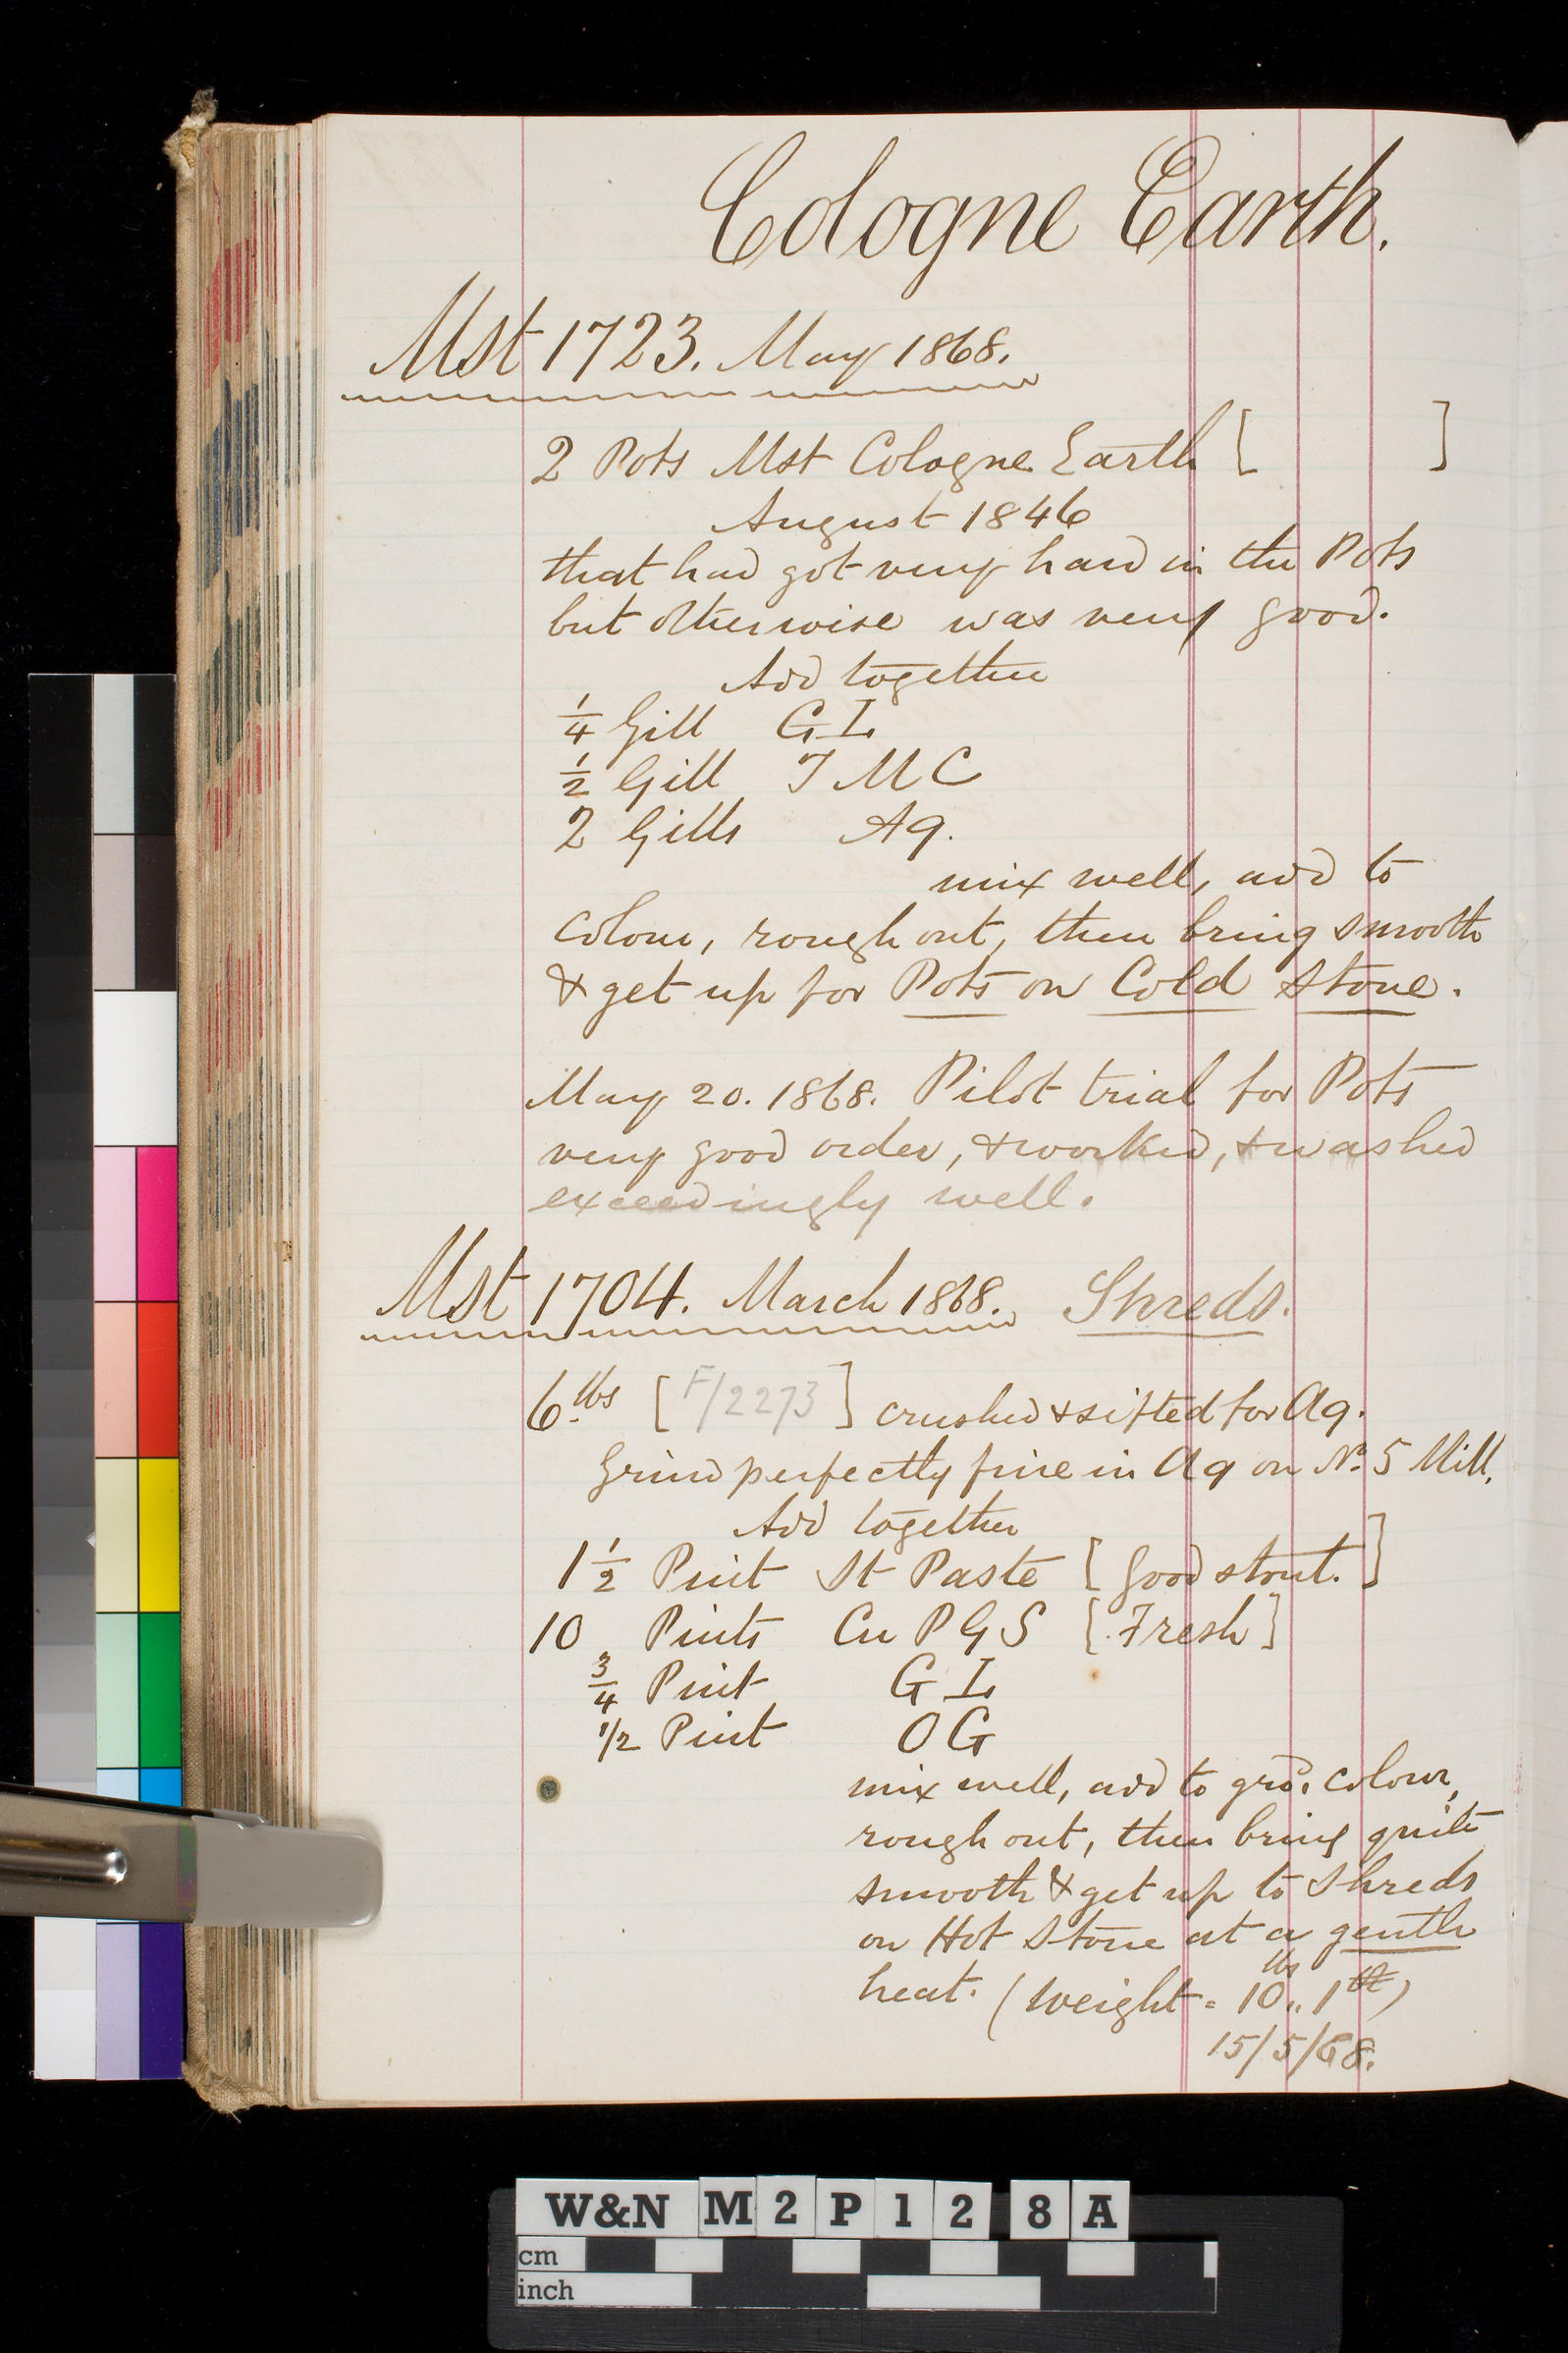 Cologne Earth.
Mst 1723. May 1868.
2 Pots Mst Cologne Earth [ ]
August 1846
that had got very hard in the Pots
but otherwise was very good.
Add together
1/4 Gill G L
1/2 Gill T M C
2 Gills Aq.
mix well, add to
colour, rough out, then bring smooth
& get up for Pots on Cold Stone.
May 20. 1868. Pilot trial for Pots
very good order, & worked, & washed
exceedingly well.
Mst 1704. March 1868. Shreds.
6 lbs [F/2273] crushed & sifted for Aq.
Grind perfectly fine in Aq on No. 5 Mill.
Add together
1 1/2 Pint St Paste [Good stout.]
10 Pints Cu P G S [Fresh]
3/4 Pint G L
1/2 Pint O G
mix well, add to grd. colour,
rough out, then bring quite
smooth & get up to Shreds
on Hot Stone at a gentle
heat. (Weight = 10 lbs .. 1
15/5/68.
W&N M2P128A
cm
inch